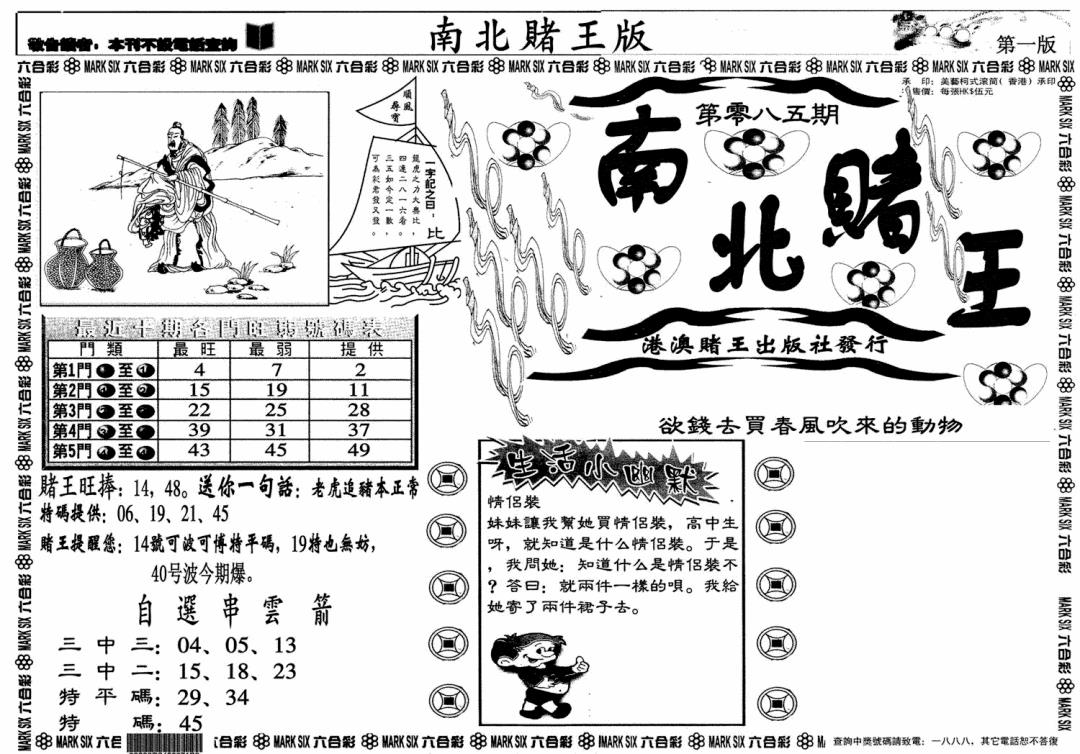 敬告讀者：本刊不設電話查詢
南北賭王版
第一版
六合彩 MARK SIX 六合彩 MARK SIX 六合彩 MARK SIX 六合彩 MARK SIX 六合彩 MARK SIX 六合彩 MARK SIX 六合彩 MARK SIX 六合彩 MARK SIX 六合彩 MARK SIX 六合彩 MARK SIX
承 印：美藝柯式滾筒(香港)承印
售價：每張HK$伍元
順風尋寶
一字記之曰：比
龍虎之力大無比，
四連二八一六看。
三五如今定一數，
可為彩君發又發。
第零八五期
南北賭王
港澳賭王出版社發行
最近十期各門旺弱號碼表
門類 最旺 最弱 提供
第1門 至 4 7 2
第2門 至 15 19 11
第3門 至 22 25 28
第4門 至 39 31 37
第5門 至 43 45 49
欲錢去買春風吹來的動物
賭王旺捧：14，48。送你一句話：老虎追豬本正常
特碼提供：06、19、21、45
賭王提醒您：14號可波可博特平碼，19特也無妨，
40号波今期爆。
自選串雲箭
三中三：04、05、13
三中二：15、18、23
特平碼：29、34
特碼：45
生活小幽默
情侶裝
妹妹讓我幫她買情侶裝，高中生
呀，就知道是什么情侶裝。于是
，我問她：知道什么是情侶裝不
？答曰：就兩件一樣的唄。我給
她寄了兩件裙子去。
查詢中獎號碼請致電：一八八八，其它電話恕不答復